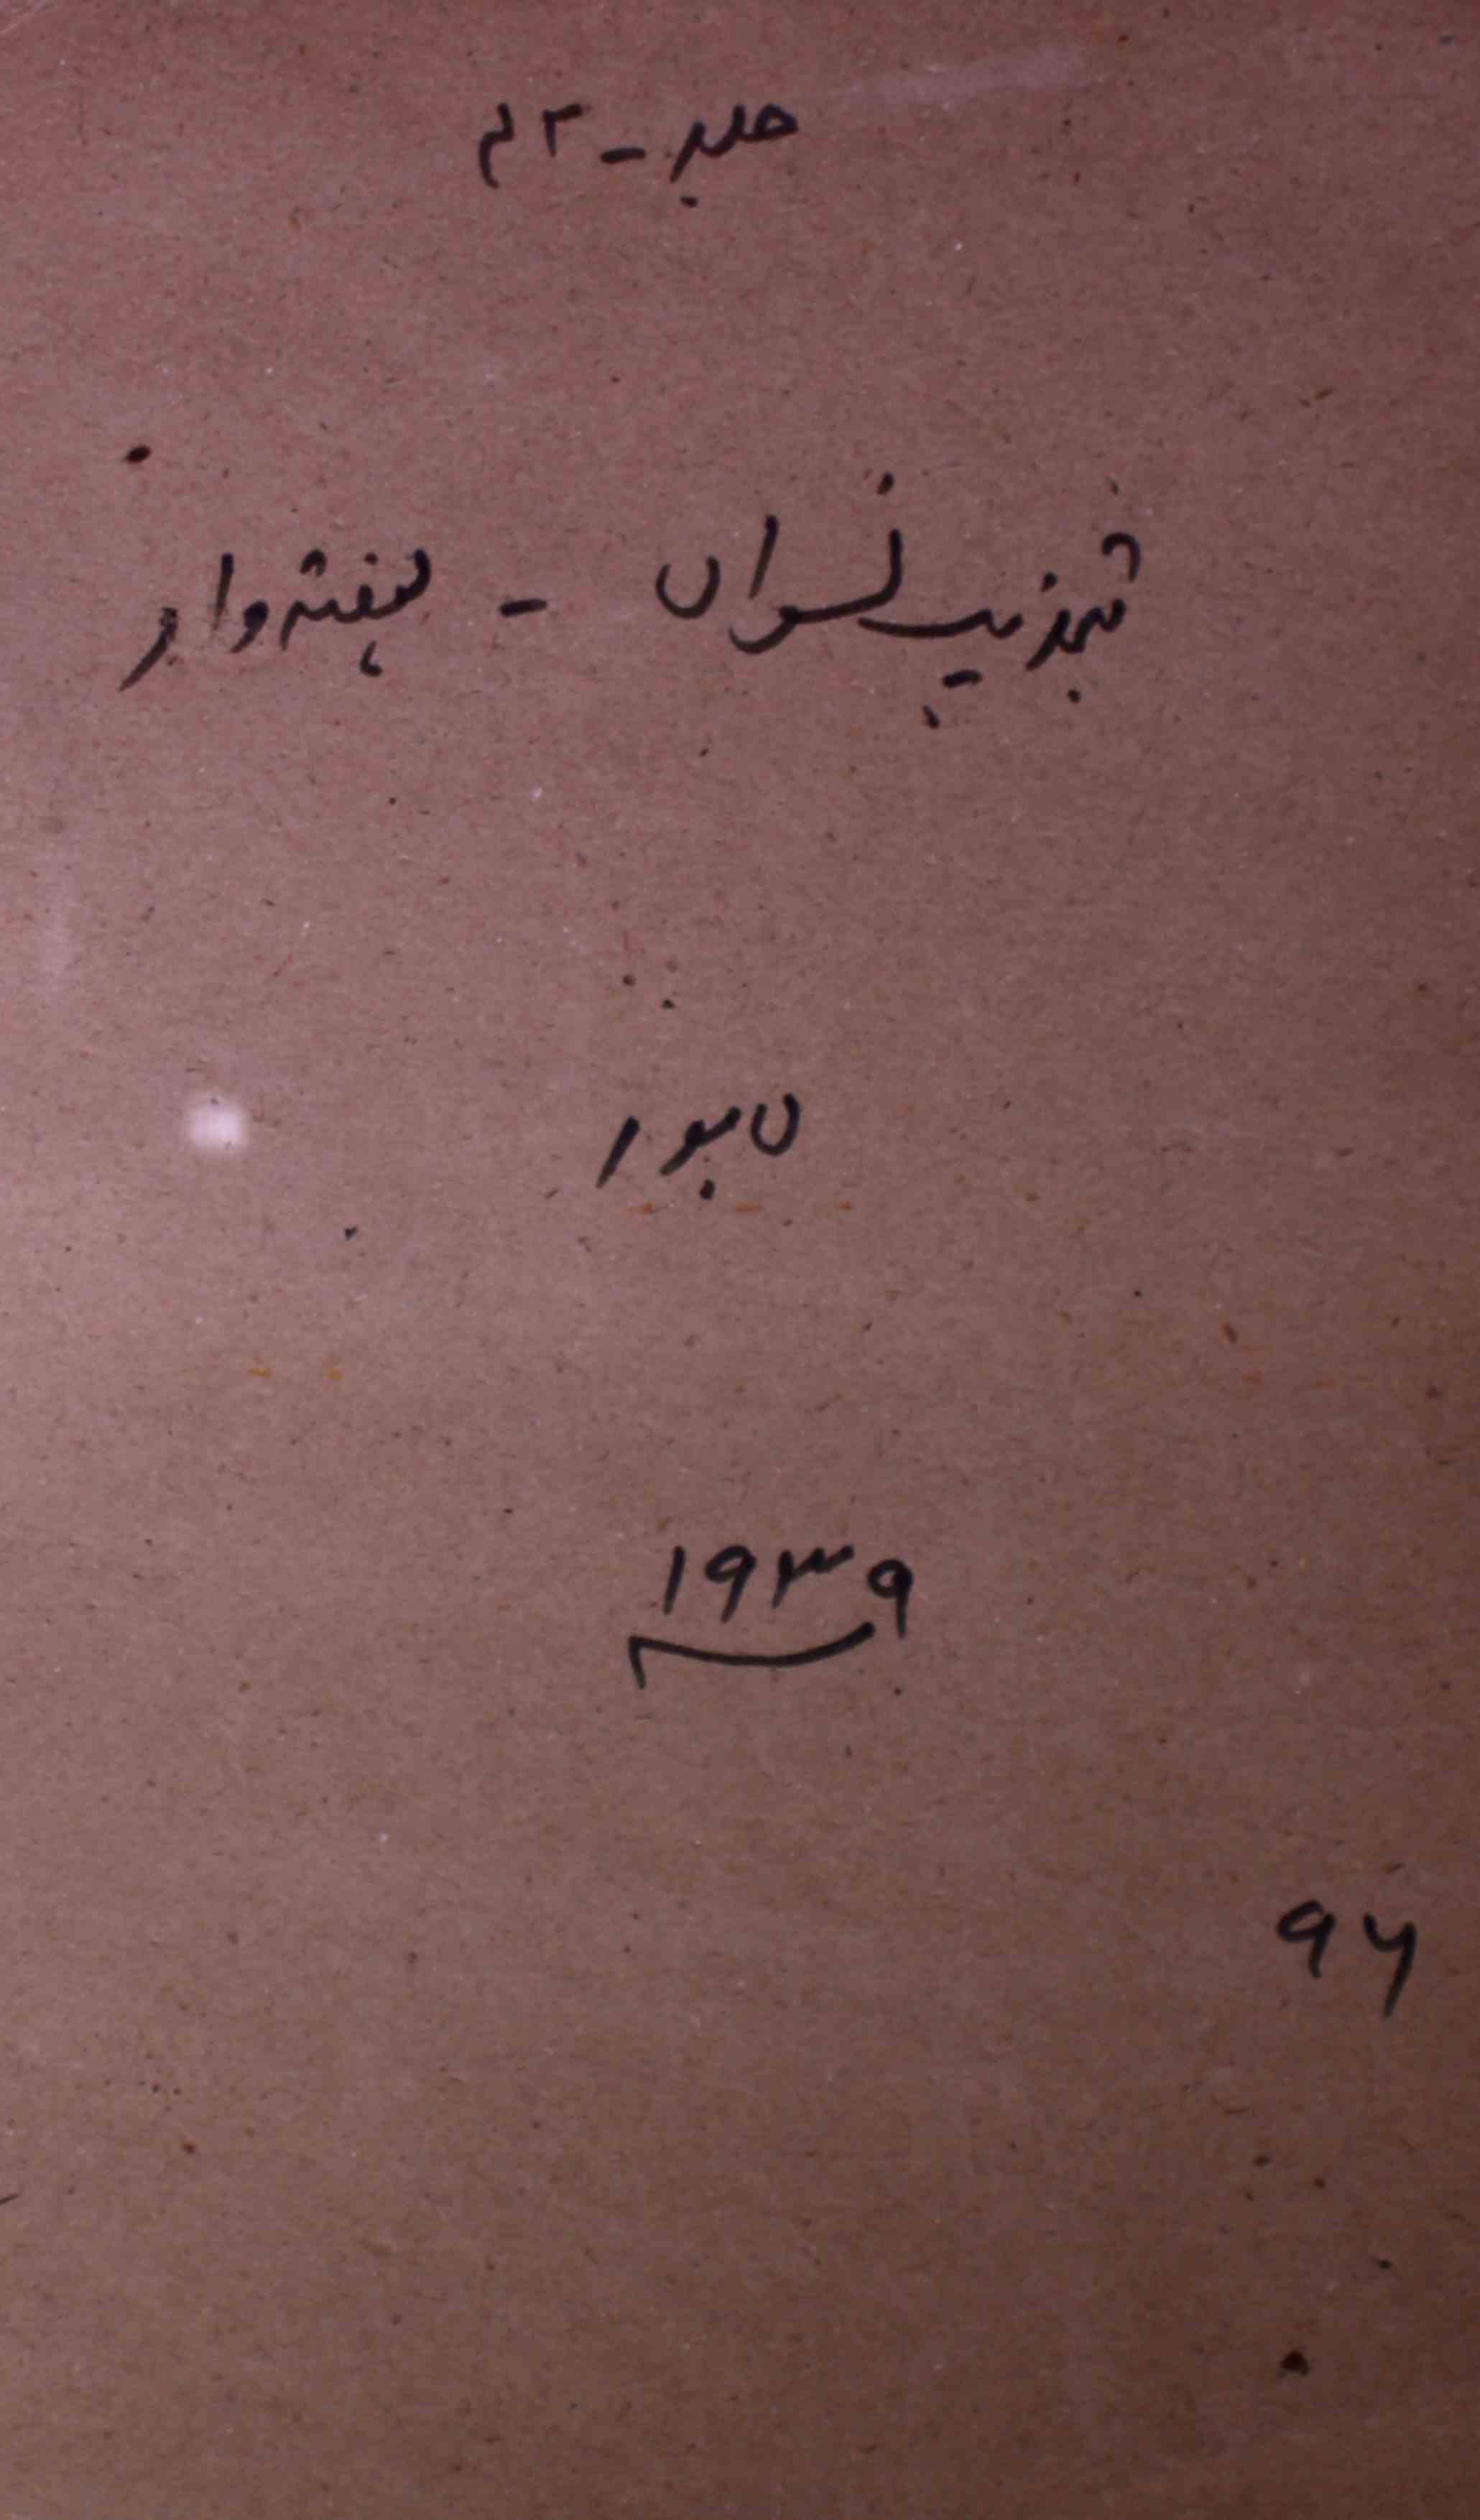 جلد - ۴۲
تہذیب نسواں - ہفتہ وار
لاہور
۱۹۳۹
۹۶